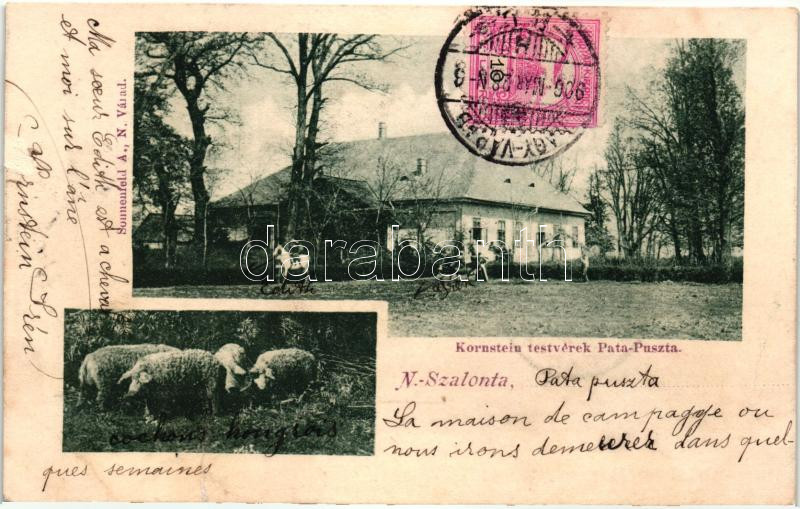 Ma sœur Edith est a cheval
et moi sur l'âne
Sonnenfeld A., N. Várad.
10
NAGY-VÁRAD
darabanth
Edith
Kornstein testvérek Pata-Puszta.
N.-Szalonta, Pata puszta
La maison de campagge ou
nous irons demeurer dans quel-
ques semaines
cochons hongrois